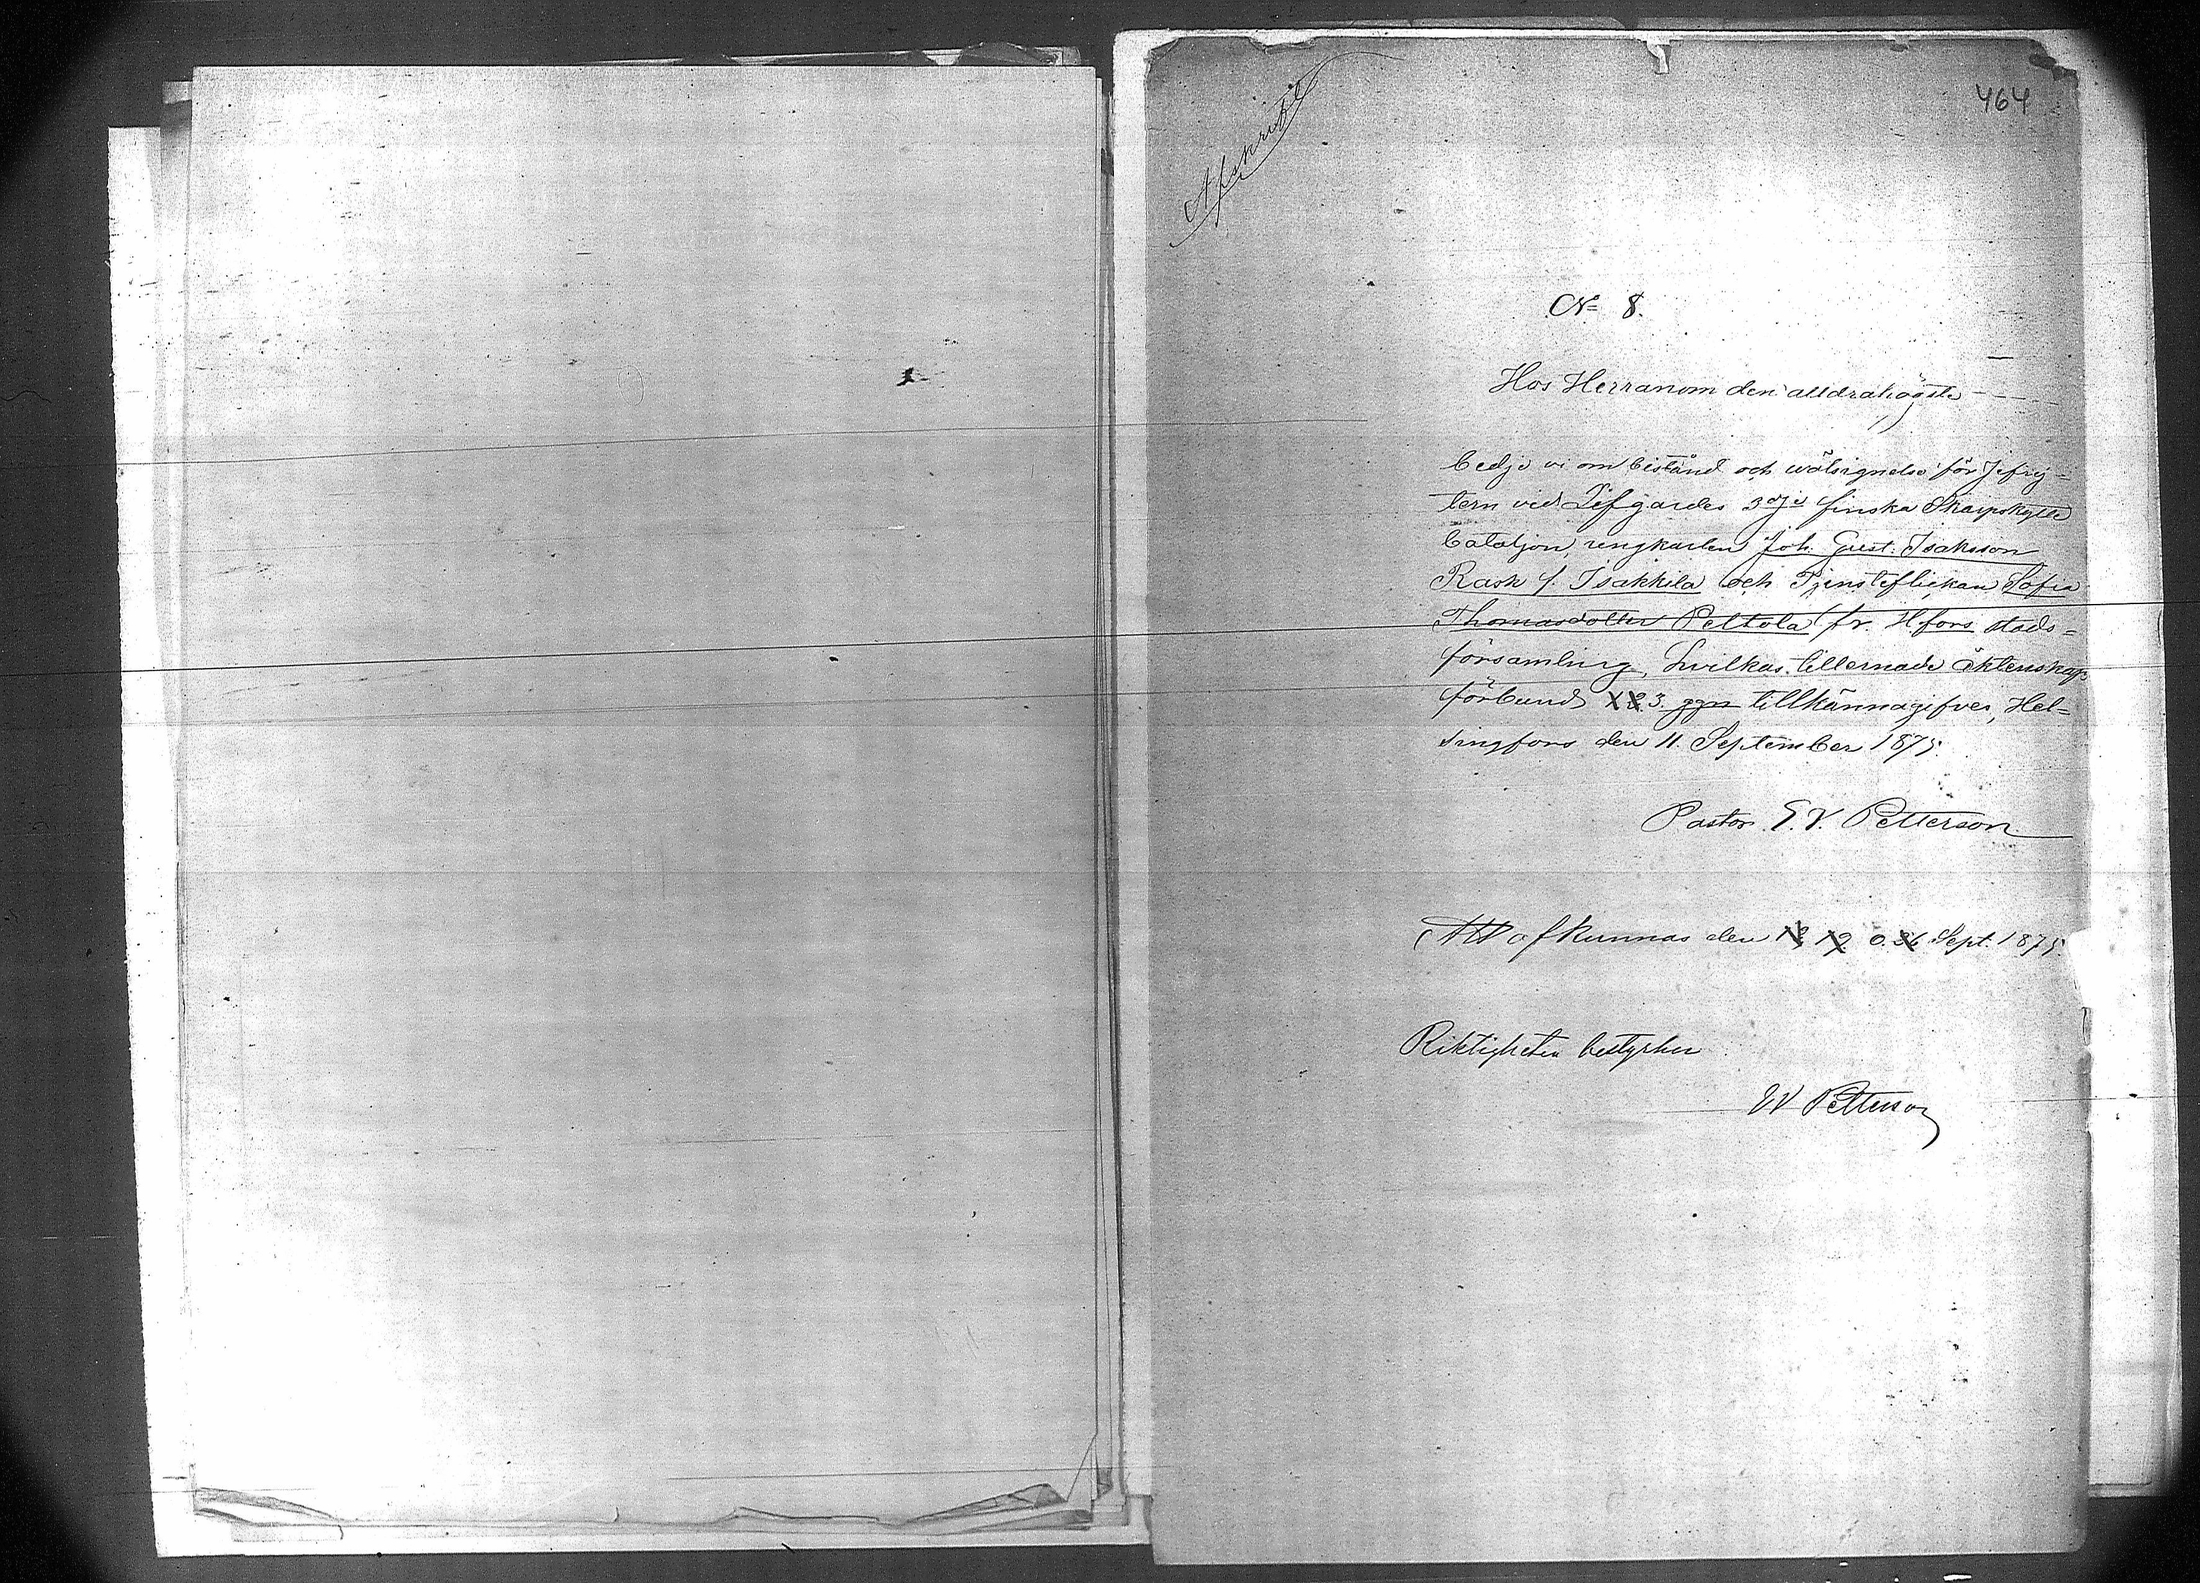 464
Afskrift
No 8.
Hos Herranom den alldrahögste
bedje vi om bistånd och wälsignelse för Jefrej-
tern vid Lifgardes 3dje finska Skarpskytte
bataljon, ungkarlen Joh. Gust. Isaksson
Rask f. Isakkila och Tjensteflickan Sofia
Thomasdotter Peltola fr. Hfors stads-
församling, hwilkas tillernade äktenskaps
förbund 3. ggn tillkännagifves, Hel-
singfors den 11. September 1875.
Pastor E. V. Petterson
Att afkunnas den 12 19 o. 26 Sept. 1875.
Riktigheten bestyrker
EV Petterson